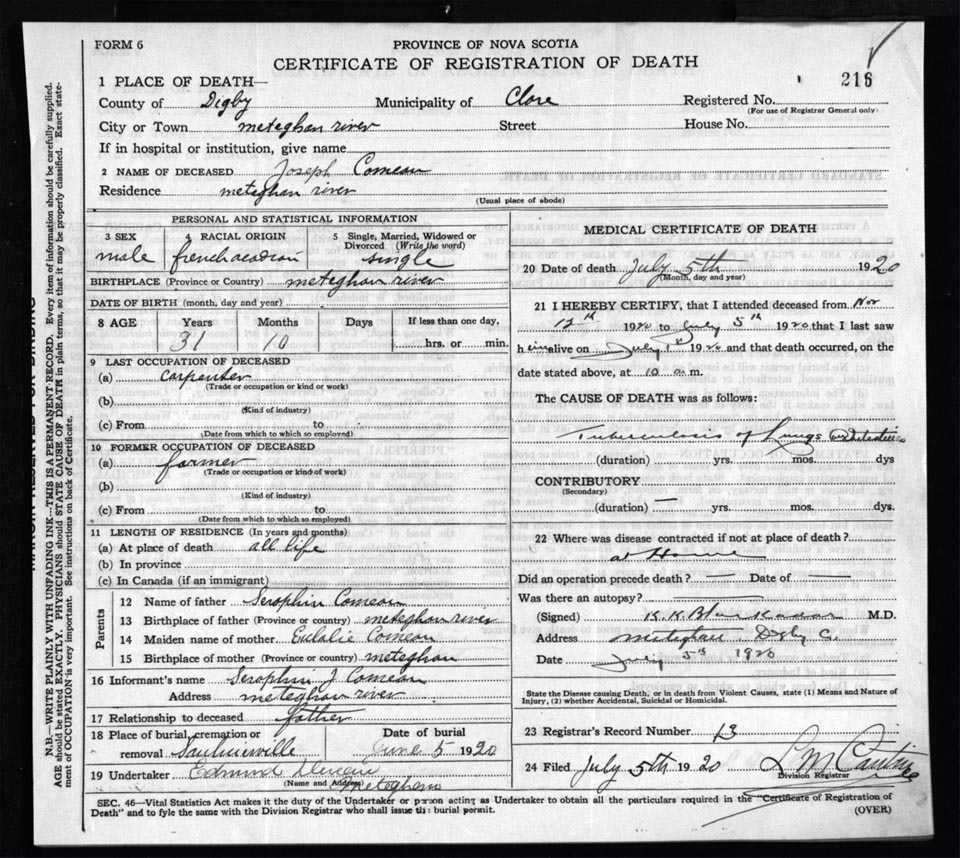 FORM 6
PROVINCE OF NOVA SCOTIA
CERTIFICATE OF REGISTRATION OF DEATH
216
1 PLACE OF DEATH—
County of Digby Municipality of Clare Registered No.
(For use of Registrar General only)
City or Town meteghan river Street House No.
If in hospital or institution, give name
2 NAME OF DECEASED Joseph Comeau
Residence meteghan river
(Usual place of abode)
PERSONAL AND STATISTICAL INFORMATION
3 SEX 4 RACIAL ORIGIN 5 Single, Married, Widowed or Divorced (Write the word)
male french acadian single
BIRTHPLACE (Province or Country) meteghan river
DATE OF BIRTH (month, day and year)
8 AGE Years Months Days If less than one day,
31 10 hrs. or min.
9 LAST OCCUPATION OF DECEASED
(a) carpenter
(Trade or occupation or kind or work)
(b)
(Kind of industry)
(c) From to
(Date from which to which so employed)
10 FORMER OCCUPATION OF DECEASED
(a) farmer
(Trade or occupation or kind of work)
(b)
(Kind of industry)
(c) From to
(Date from which to which so employed)
11 LENGTH OF RESIDENCE (In years and months)
(a) At place of death all life
(b) In province
(c) In Canada (if an immigrant)
Parents
12 Name of father Seraphin Comeau
13 Birthplace of father (Province or country) meteghan river
14 Maiden name of mother Eulalie Comeau
15 Birthplace of mother (Province or country) meteghan
16 Informant's name Seraphin J. Comeau
Address meteghan river
17 Relationship to deceased father
18 Place of burial, cremation or removal Saulnierville Date of burial June 5 1920
19 Undertaker Edmund
(Name and Address) Meteghan
MEDICAL CERTIFICATE OF DEATH
20 Date of death July 5th 1920
(Month, day and year)
21 I HEREBY CERTIFY, that I attended deceased from Nov
12th 1920 to July 5th 1920 that I last saw
him alive on July 1920 and that death occurred, on the
date stated above, at 10 a.m.
The CAUSE OF DEATH was as follows:
Tuberculosis of Lungs
(duration) yrs. mos. dys
CONTRIBUTORY
(Secondary)
(duration) — yrs. mos. dys.
22 Where was disease contracted if not at place of death?
at Home
Did an operation precede death? — Date of —
Was there an autopsy? —
(Signed) M.D.
Address Meteghan Digby C.
Date July 5th 1920
State the Disease causing Death, or in death from Violent Causes, state (1) Means and Nature of
Injury, (2) whether Accidental, Suicidal or Homicidal.
23 Registrar's Record Number 13
24 Filed July 5th 1920 L M
Division Registrar
SEC. 46—Vital Statistics Act makes it the duty of the Undertaker or person acting as Undertaker to obtain all the particulars required in the "Certificate of Registration of
Death" and to fyle the same with the Division Registrar who shall issue the burial permit.
(OVER)
MARGIN RESERVED FOR BINDING
N.B.—WRITE PLAINLY WITH UNFADING INK—THIS IS A PERMANENT RECORD. Every item of information should be carefully supplied.
AGE should be stated EXACTLY. PHYSICIANS should STATE CAUSE OF DEATH in plain terms, so that it may be properly classified. Exact state-
ment of OCCUPATION is very important. See instructions on back of Certificate.